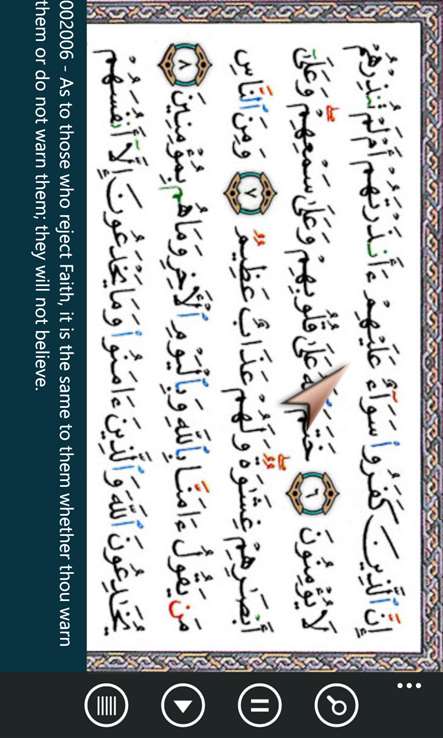 إِنَّ ٱلَّذِينَ كَفَرُوا۟ سَوَآءٌ عَلَيْهِمْ ءَأَنذَرْتَهُمْ أَمْ لَمْ تُنذِرْهُمْ
لَا يُؤْمِنُونَ ٦ خَتَمَ عَلَىٰ قُلُوبِهِمْ وَعَلَىٰ سَمْعِهِمْ وَعَلَىٰٓ
أَبْصَـٰرِهِمْ غِشَـٰوَةٌ وَلَهُمْ عَذَابٌ عَظِيمٌ ٧ وَمِنَ ٱلنَّاسِ
مَن يَقُولُ ءَامَنَّا بِٱللَّهِ وَبِٱلْيَوْمِ ٱلْأَخِرِ وَمَا هُم بِمُؤْمِنِينَ ٨
يُخَـٰدِعُونَ ٱللَّهَ وَٱلَّذِينَ ءَامَنُوا۟ وَمَا يَخْدَعُونَ إِلَّآ أَنفُسَهُمْ
002006 - As to those who reject Faith, it is the same to them whether thou warn
them or do not warn them; they will not believe.